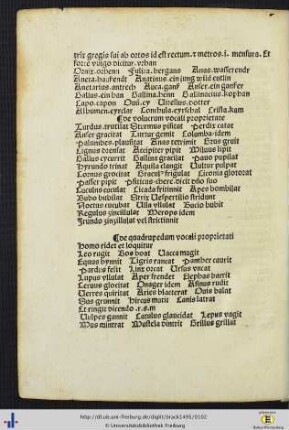 tris gregis sui ab ortos id est rectum. v metros. i. mensura. Et
force vulgo dicitur vrban
Ornix. orhenn Fulica. bergans Anas. wasserendt
Aneta. haußendt Anetinus. ein jung wild entlin
Anetarius. antrech Auca. ganß Anser. ein ganßer
Gallus. ein han Gallina. henn Gallinacius. kophan
Lapo. capon Oui. ey Vitellus. dotter
Albumen. eyrclar Londula. eyrschal Crista. kam
De volucrum vocali proprietate
Turdus. trutilat Sturnus pisitat Perdix catat
Anser gracitat Turtur gemit Columba. idem
Palumbes. plausitat Anas tetrinit Grus gruit
Cignus drensat Accipiter pipit Miluus lipit
Gallus cucurrit Gallina gracillat Pauo pupillat
Hyrundo trinsat Aquila clangit Vultur pulpat
Coruus grocitat Graculus frigulat Ciconia glororat
Passer pipit
Cuculus cuculat Cicada fritinnit Apes bombilat
Bubo bubilat Strix Vespertilio stridunt
Noctua cucubat Vlula vlulat Bucio bubit
Regulus zinzilulat Merops idem
Jrundo zinzilulat vel strictinnit
De quadrupedum vocali proprietati
Homo ridet et loquitur
Leo rugit Bos boat Vacca mugit
Equus hynnit Tigris rancat Panther caurit
Pardus felit Linx orcat Vrsus vncat
Lupus vlulat Aper frendet Elephas barrit
Ceruus glocitat Onager idem Asinus rudit
Verres quiritat Aries blacterat Ouis balat
Sus grunnit Hircus mutit Canis latrat
Et ringit dicendo. r. s. m
Vulpes gannit Catulus glaucidat Lepus vagit
Mus mintrat Mustela dintrit Grillus grillat
http://dl.ub.uni-freiburg.de/diglit/brack1491/0102
© Universitätsbibliothek Freiburg